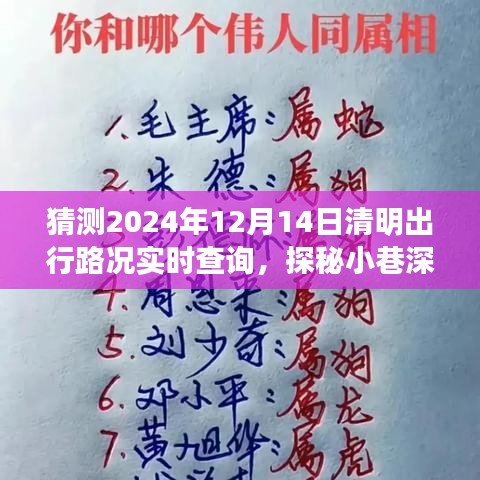 你和哪个伟人同属相
1.毛主席:属蛇
2.朱德:属狗
猜测2024年12月14日清明出
行路况实时查询，探秘小巷深
4.周恩来:属狗
5.刘少奇:属狗
6.邓小平:属龙
7.黄旭华:属虎